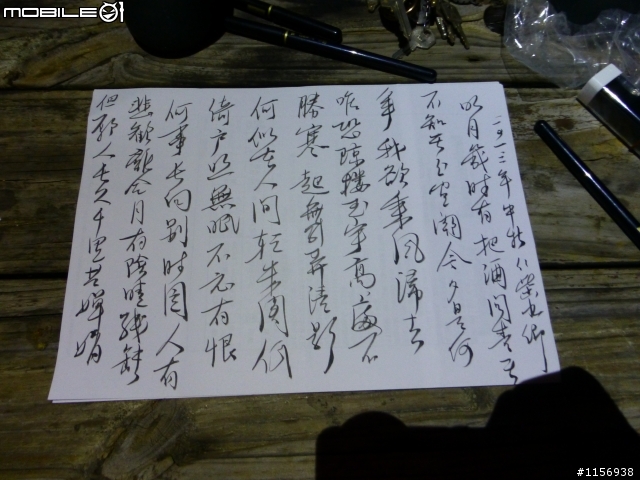 MOBILE01
二〇一三年中秋
明月幾時有把酒問青天
不知天上宮闕今夕是何
年我欲乘風歸去
唯恐瓊樓玉宇高處不
勝寒起舞弄清影
何似在人間轉朱閣低
倚戶照無眠不應有恨
何事長向別時圓人有
悲歡離合月有陰晴殘缺
但願人長久千里共嬋娟
#1156938